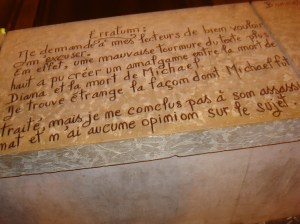 Erratum :
Je demande à mes lecteurs de bien vouloir
m'en excuser.
En effet, une mauvaise tournure du texte plus
haut a pu créer un amalgame entre la mort de
Diana et la mort de Michael.
Je trouve étrange la façon dont Michael fut
traité, mais je ne conclus pas à son assassi
nat et n'ai aucune opinion sur le sujet